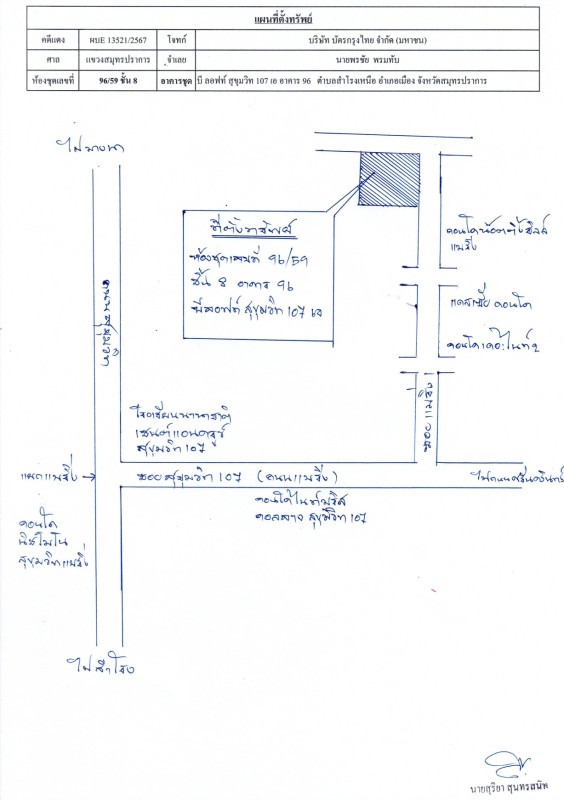 แผนที่ตั้งทรัพย์
คดีแดง ผบE 13521/2567 โจทก์ บริษัท บัตรกรุงไทย จำกัด (มหาชน)
ศาล แขวงสมุทรปราการ จำเลย นายพรชัย พรมทับ
ห้องชุดเลขที่ 96/59 ชั้น 8 อาคารชุด บี ลอฟท์ สุขุมวิท 107 เอ อาคาร 96 ตำบลสำโรงเหนือ อำเภอเมือง จังหวัดสมุทรปราการ
ไปบางนา
ที่ตั้งทรัพย์
ห้องชุดเลขที่ 96/59
ชั้น 8 อาคาร 96
บีลอฟท์ สุขุมวิท 107 เอ
แบริ่ง
คอนโด
ถนนสุขุมวิท
โรงเรียนนานาชาติ
เซนต์แอนดรูว์
สุขุมวิท 107
แยกแบริ่ง
ซอยสุขุมวิท 107 (ถนนแบริ่ง)
ไปถนนศรีนครินทร์
สุขุมวิท 107
คอนโด
นิชโมโน
สุขุมวิทแบริ่ง
ไปสำโรง
นายสุริยา สุนทรสนิท